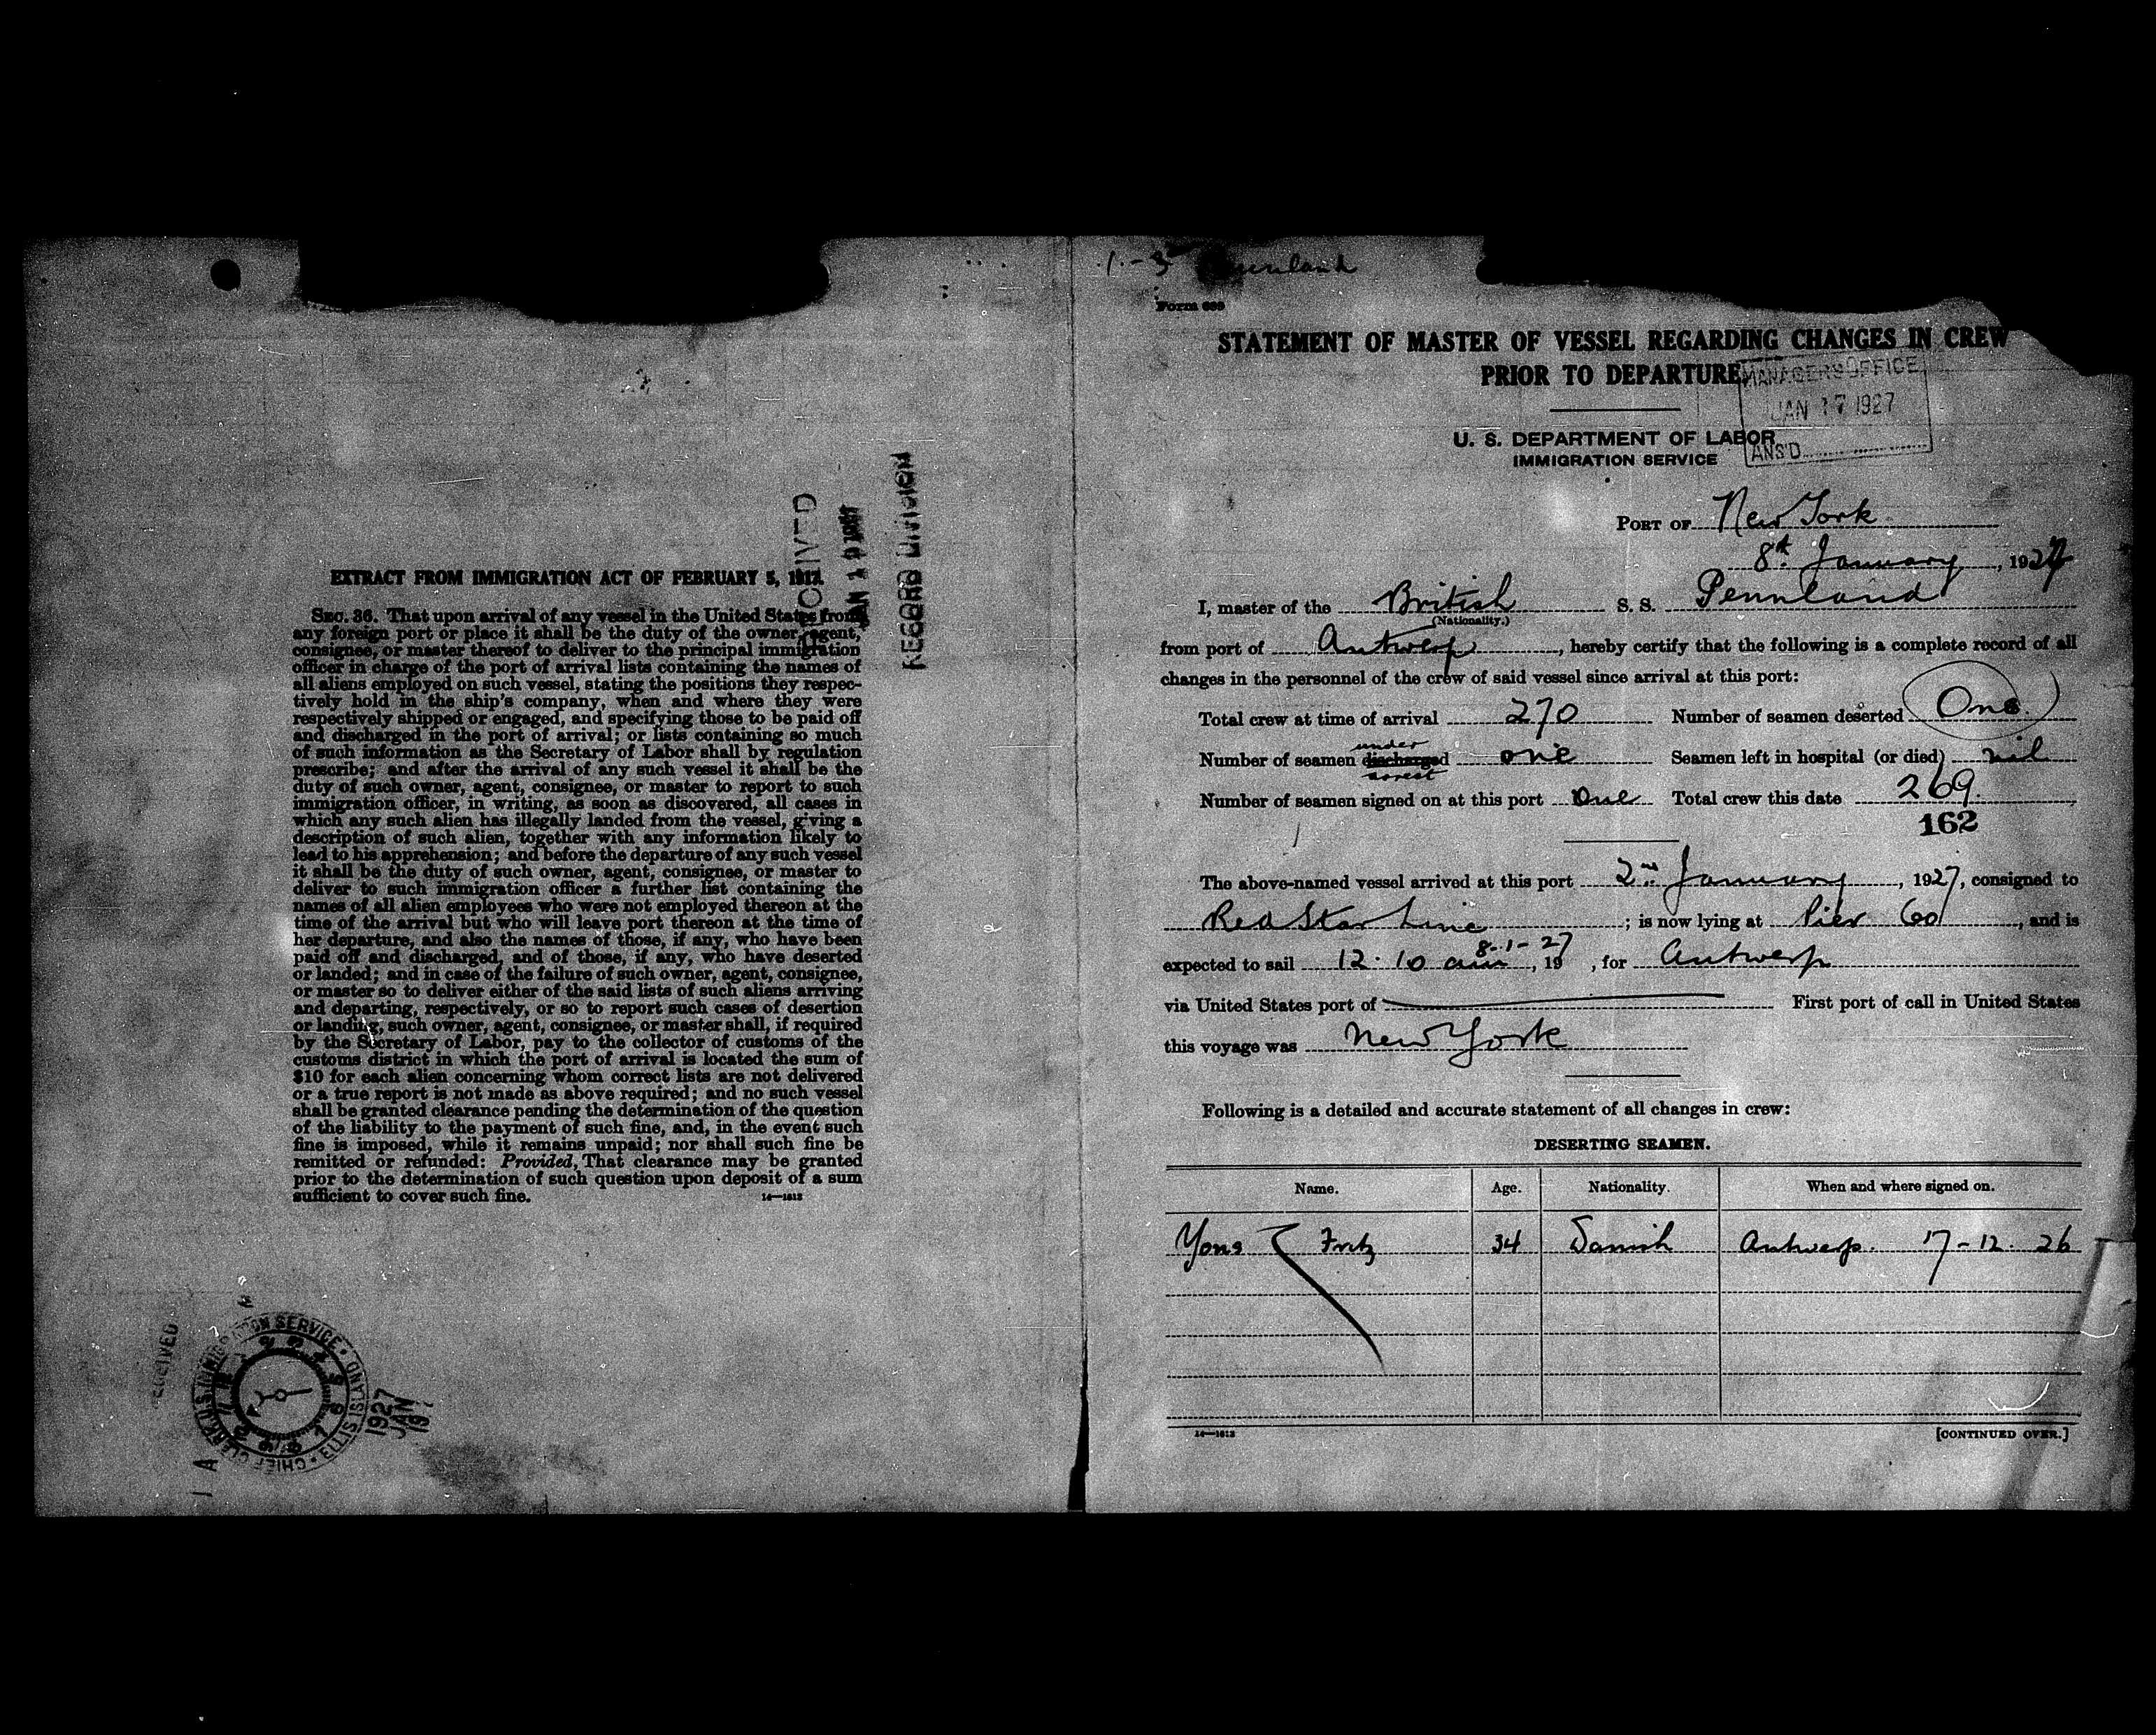 EXTRACT FROM IMMIGRATION ACT OF FEBRUARY 5, 1917.
SEC. 36. That upon arrival of any vessel in the United States from
any foreign port or place it shall be the duty of the owner, agent,
consignee, or master thereof to deliver to the principal immigration
officer in charge of the port of arrival lists containing the names of
all aliens employed on such vessel, stating the positions they respec-
tively hold in the ship's company, when and where they were
respectively shipped or engaged, and specifying those to be paid off
and discharged in the port of arrival; or lists containing so much
of such information as the Secretary of Labor shall by regulation
prescribe; and after the arrival of any such vessel it shall be the
duty of such owner, agent, consignee, or master to report to such
immigration officer, in writing, as soon as discovered, all cases in
which any such alien has illegally landed from the vessel, giving a
description of such alien, together with any information likely to
lead to his apprehension; and before the departure of any such vessel
it shall be the duty of such owner, agent, consignee, or master to
deliver to such immigration officer a further list containing the
names of all alien employees who were not employed thereon at the
time of the arrival but who will leave port thereon at the time of
her departure, and also the names of those, if any, who have been
paid off and discharged, and of those, if any, who have deserted
or landed; and in case of the failure of such owner, agent, consignee,
or master so to deliver either of the said lists of such aliens arriving
and departing, respectively, or so to report such cases of desertion
or landing, such owner, agent, consignee, or master shall, if required
by the Secretary of Labor, pay to the collector of customs of the
customs district in which the port of arrival is located the sum of
$10 for each alien concerning whom correct lists are not delivered
or a true report is not made as above required; and no such vessel
shall be granted clearance pending the determination of the question
of the liability to the payment of such fine, and, in the event such
fine is imposed, while it remains unpaid; nor shall such fine be
remitted or refunded: Provided, That clearance may be granted
prior to the determination of such question upon deposit of a sum
sufficient to cover such fine. 14—1612
RECEIVED
RECORD DIVISION
RECEIVED
CHIEF CLERK U.S. IMMIGRATION SERVICE · ELLIS ISLAND
1927
JAN
1-3
Form 689
STATEMENT OF MASTER OF VESSEL REGARDING CHANGES IN CREW
PRIOR TO DEPARTURE
MANAGERS OFFICE
JAN 17 1927
ANS'D
U. S. DEPARTMENT OF LABOR
IMMIGRATION SERVICE
PORT OF New York
8th January, 1927
I, master of the British S. S. Pennland
(Nationality.)
from port of Antwerp, hereby certify that the following is a complete record of all
changes in the personnel of the crew of said vessel since arrival at this port:
Total crew at time of arrival 270 Number of seamen deserted One.
under
Number of seamen discharged one Seamen left in hospital (or died) nil
arrest
Number of seamen signed on at this port One Total crew this date 269.
162
The above-named vessel arrived at this port 2nd January, 1927, consigned to
Red Star Line; is now lying at Pier 60, and is
8-1-27
expected to sail 12.10 am, 19 , for Antwerp
via United States port of First port of call in United States
this voyage was New York
Following is a detailed and accurate statement of all changes in crew:
DESERTING SEAMEN.
Name. Age. Nationality. When and where signed on.
Yons Fritz 34 Danish Antwerp. 17-12-26
14—1612 [CONTINUED OVER.]